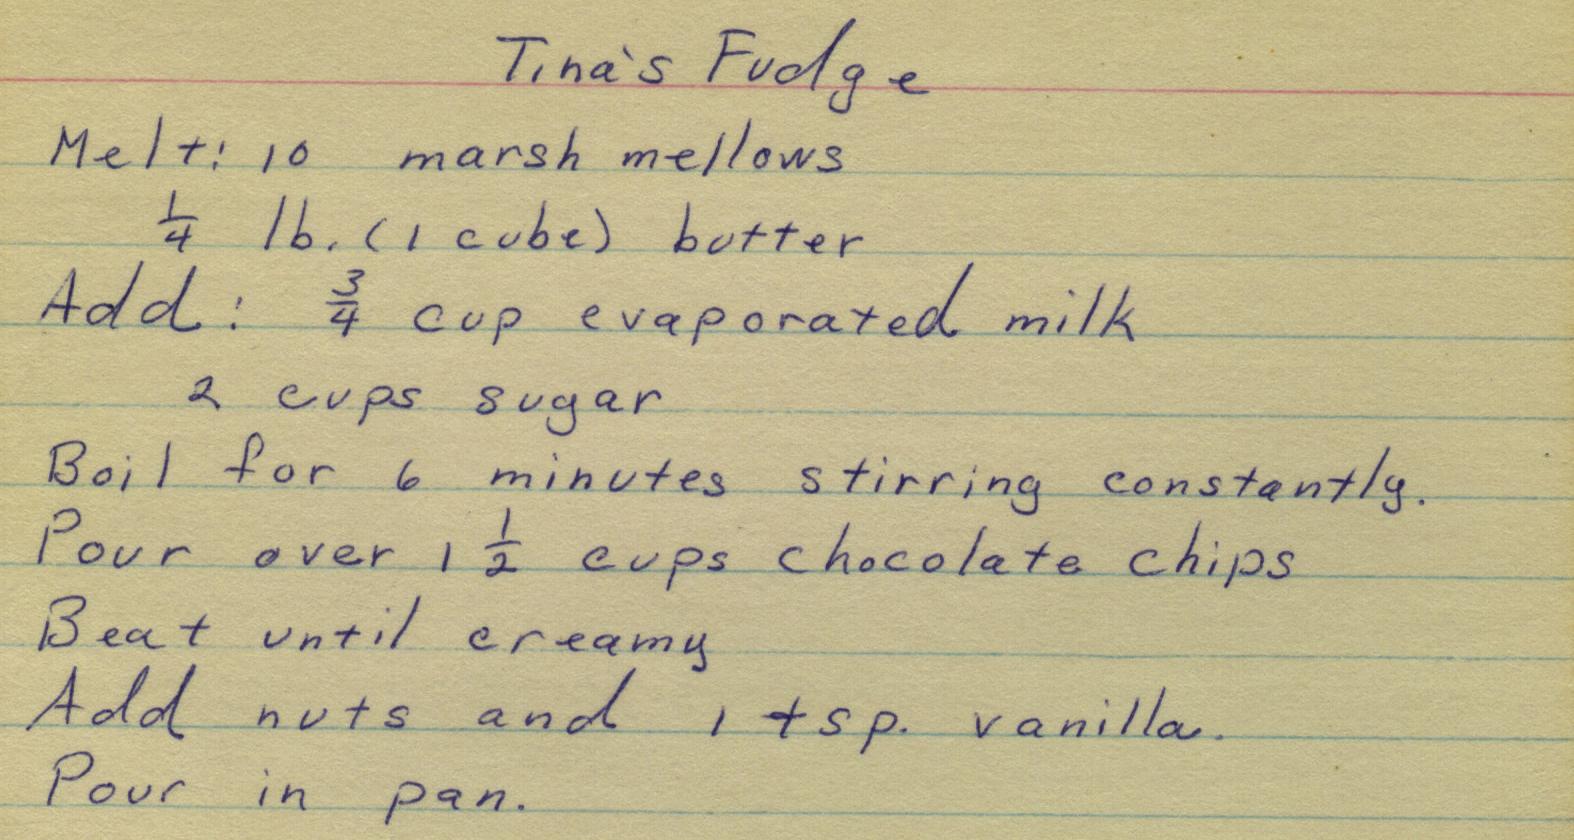 Tina's Fudge
Melt: 10 marsh mellows
1/4 lb. (1 cube) butter
Add: 3/4 cup evaporated milk
2 cups sugar
Boil for 6 minutes stirring constantly.
Pour over 1 1/2 cups chocolate chips
Beat until creamy
Add nuts and 1 tsp. vanilla.
Pour in pan.